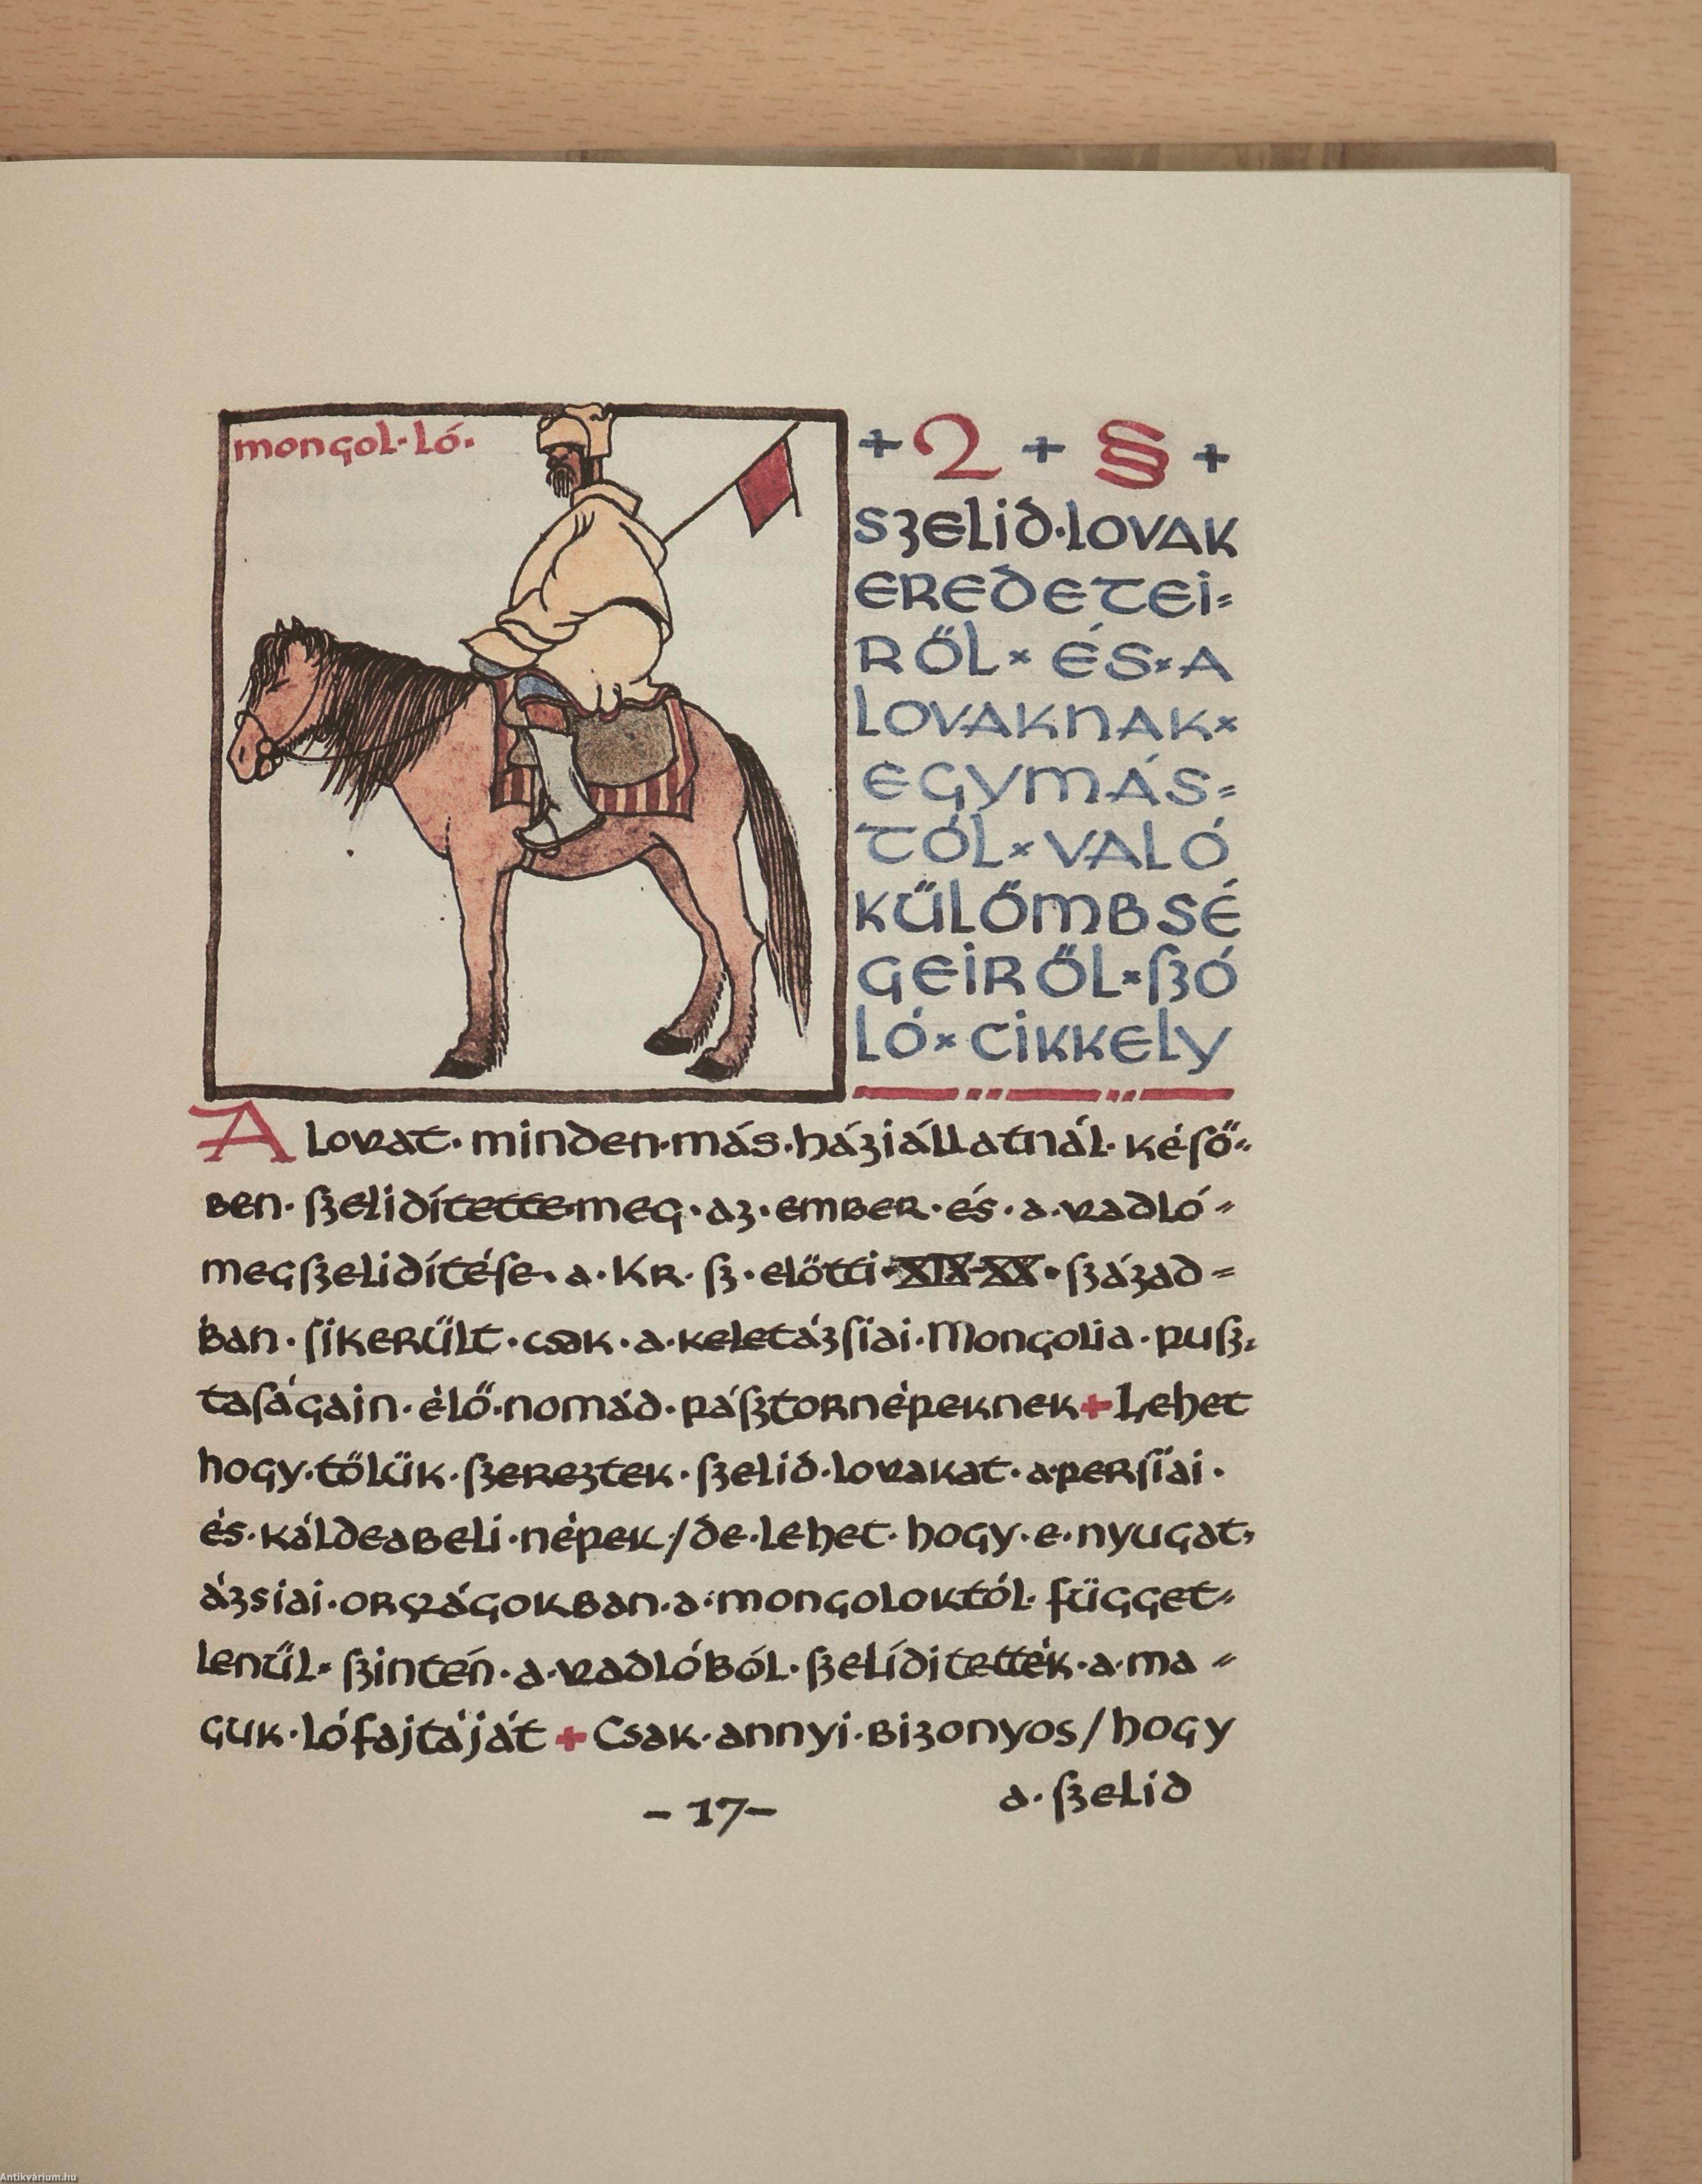 mongol·ló·
+ 2 + § +
SZELID·LOVAK
EREDETEI=
RŐL × ÉS × A
LOVAKNAK ×
EGYMÁS=
TÓL × VALÓ
KŰLŐMBSÉ
GEIRŐL × SZÓ
LÓ × CIKKELY
A lovat· minden·más·háziállatnál· késő=
ben· szelidítette·meg·az·ember·és·a·vadló=
megszelidítése·a·Kr·sz·előtti·XIX-XX·század=
ban·sikerűlt·csak·a·keletázsiai·Mongolia·pusz=
taságain·élő·nomád·pásztornépeknek+Lehet
hogy·tőlük·szereztek·szelid·lovakat·a·persiai·
és·káldeabeli·népek/de·lehet·hogy·e·nyugat=
ázsiai·országokban·a·mongoloktól·függet=
lenűl·szintén·a·vadlóból·szelíditették·a·ma=
guk·lófajtáját+Csak·annyi·bizonyos/hogy
a·szelid
-17-
Antikvárium.hu